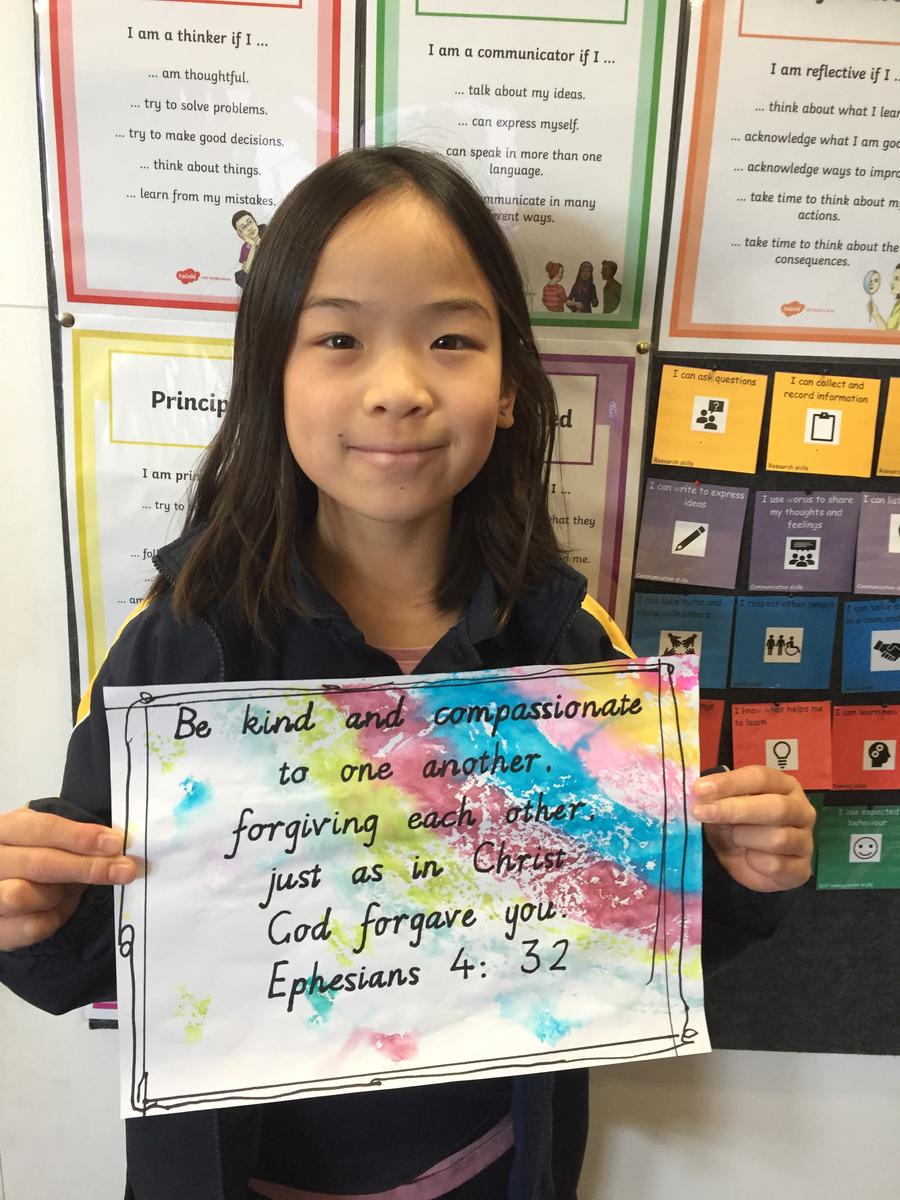 I am a thinker if I ...
... am thoughtful.
... try to solve problems.
... try to make good decisions.
... think about things.
... learn from my mistakes.
twinkl
I am a communicator if I ...
... talk about my ideas.
... can express myself.
can speak in more than one
language.
in many
ways.
I am reflective if I
... think about what I
... acknowledge what I am
... acknowledge ways to
... take time to think about
actions.
... take time to think about the
consequences.
twinkl
I am
... try to
I ...
they
me.
I can ask questions
Research skills
I can collect and
record information
Research skills
I can write to express
ideas
Communication skills
I use words to share
my thoughts and
feelings
Communication skills
I can
I can take turns and
share with others
I respect other people
I can
I know what helps me
to learn
Thinking skills
I can learn
I use expected
behaviour
Self management skills
Be kind and compassionate
to one another.
forgiving each other,
just as in Christ
God forgave you.
Ephesians 4: 32